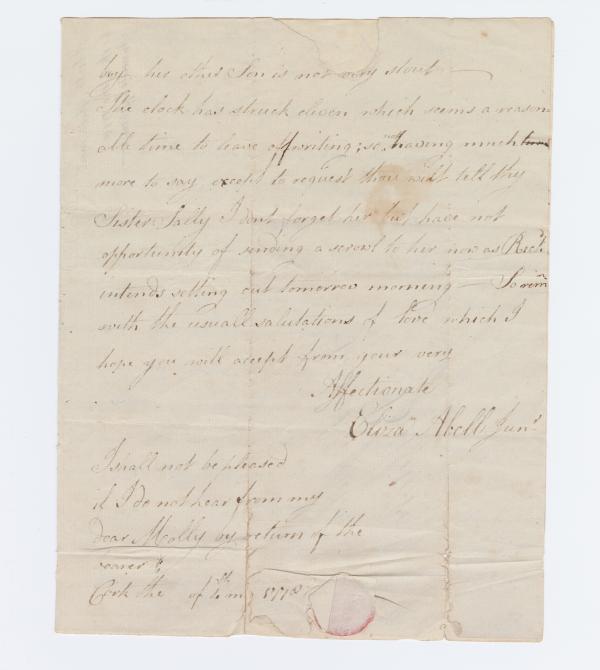 boy her other Son is not very stout —
The clock has struck eleven which seems a reason
able time to leave off writing; so not having much time
more to say, except to request thou wilt tell thy
Sister Sally I dont forget her but have not
opportunity of sending a scrowl to her now as Richd
intends setting out tomorrow morning — So rem
with the usuall salutations of love which I
hope you will accept from your very
Affectionate
Eliza Abell Junr
I shall not be pleased
if I do not hear from my
dear Molly by return of the
bearer
Cork the of mo 1778